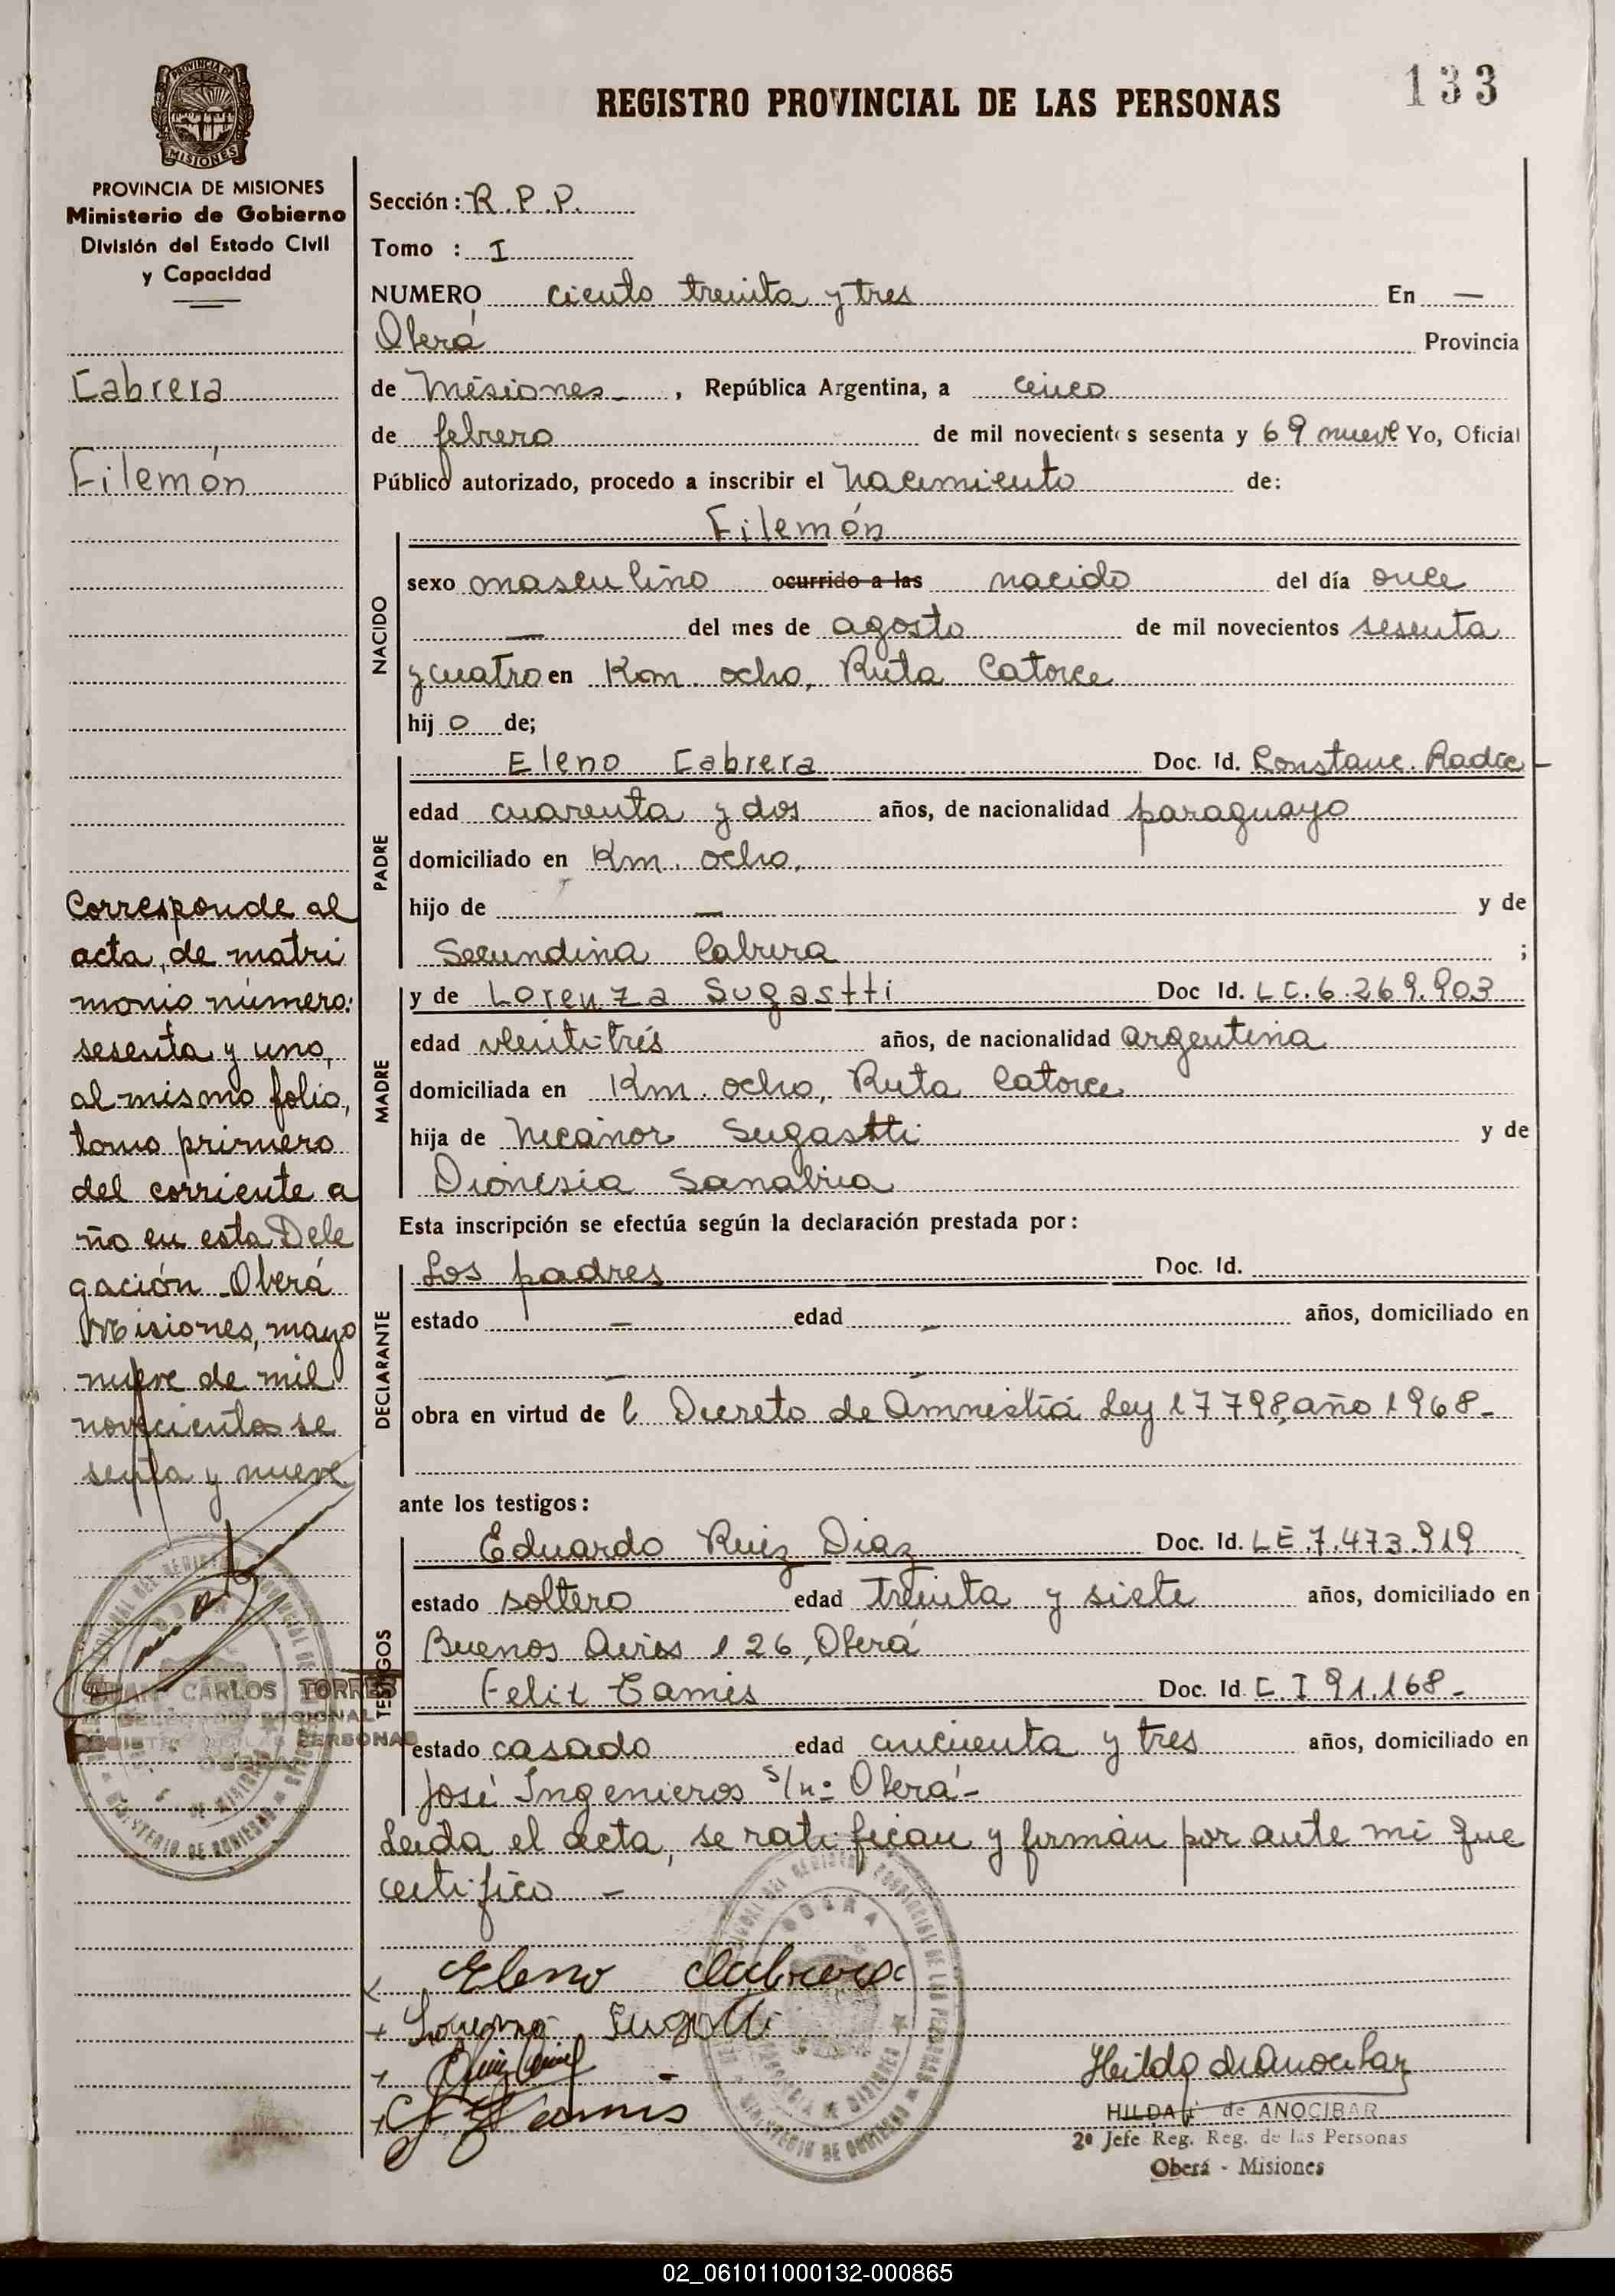 133
REGISTRO PROVINCIAL DE LAS PERSONAS
PROVINCIA DE MISIONES
Ministerio de Gobierno
División del Estado Civil
y Capacidad
Cabrera
Filemón
Corresponde al
acta, de matri
monio número:
sesenta y uno,
al mismo folio,
tomo primero
del corriente a
ño en esta Dele
gación. Oberá
Misiones, mayo
nueve de mil
novecientos se
senta y nueve
JUAN CARLOS TORRES
Sección: R.P.P.
Tomo : I
NUMERO ciento treinta y tres En —
Oberá Provincia
de Misiones , República Argentina, a cinco
de febrero de mil novecientos sesenta y 69 nueve Yo, Oficial
Público autorizado, procedo a inscribir el nacimiento de:
Filemón
NACIDO
sexo masculino ocurrido a las nacido del día once
— del mes de agosto de mil novecientos sesenta
y cuatro en Km. ocho, Ruta Catorce
hij o de;
PADRE
Eleno Cabrera Doc. Id. Constanc. Radic
edad cuarenta y dos años, de nacionalidad paraguayo
domiciliado en Km. ocho,
hijo de — y de
Secundina Cabrera ;
MADRE
y de Lorenza Sugastti Doc Id. LC.6.269.903
edad veintitrés años, de nacionalidad argentina
domiciliada en Km. ocho, Ruta Catorce
hija de Nicanor Sugastti y de
Dionisia Sanabria
Esta inscripción se efectúa según la declaración prestada por:
DECLARANTE
Los padres Doc. Id.
estado — edad — años, domiciliado en
obra en virtud de l Decreto de Amnistía Ley 17798, año 1968-
ante los testigos:
TESTIGOS
Eduardo Ruiz Diaz Doc. Id. LE.7.473.919
estado soltero edad treinta y siete años, domiciliado en
Buenos Aires 126, Oberá
Felix Doc. Id. C.I 91.168-
estado casado edad cincuenta y tres años, domiciliado en
José Ingenieros s/nº Oberá-
Leída el acta, se ratifican y firman por ante mi que
certifico -
Eleno Cabrera
HILDA de ANOCIBAR
2º Jefe Reg. Reg. de las Personas
Oberá - Misiones
02_061011000132-000865